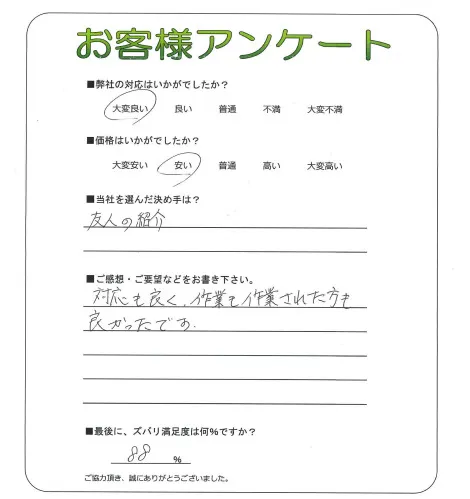 お客様アンケート
■弊社の対応はいかがでしたか？
大変良い 良い 普通 不満 大変不満
■価格はいかがでしたか？
大変安い 安い 普通 高い 大変高い
■当社を選んだ決め手は？
友人の紹介
■ご感想・ご要望などをお書き下さい。
対応も良く、作業も作業された方も
良かったです.
■最後に、ズバリ満足度は何%ですか？
88 %
ご協力頂き、誠にありがとうございました。